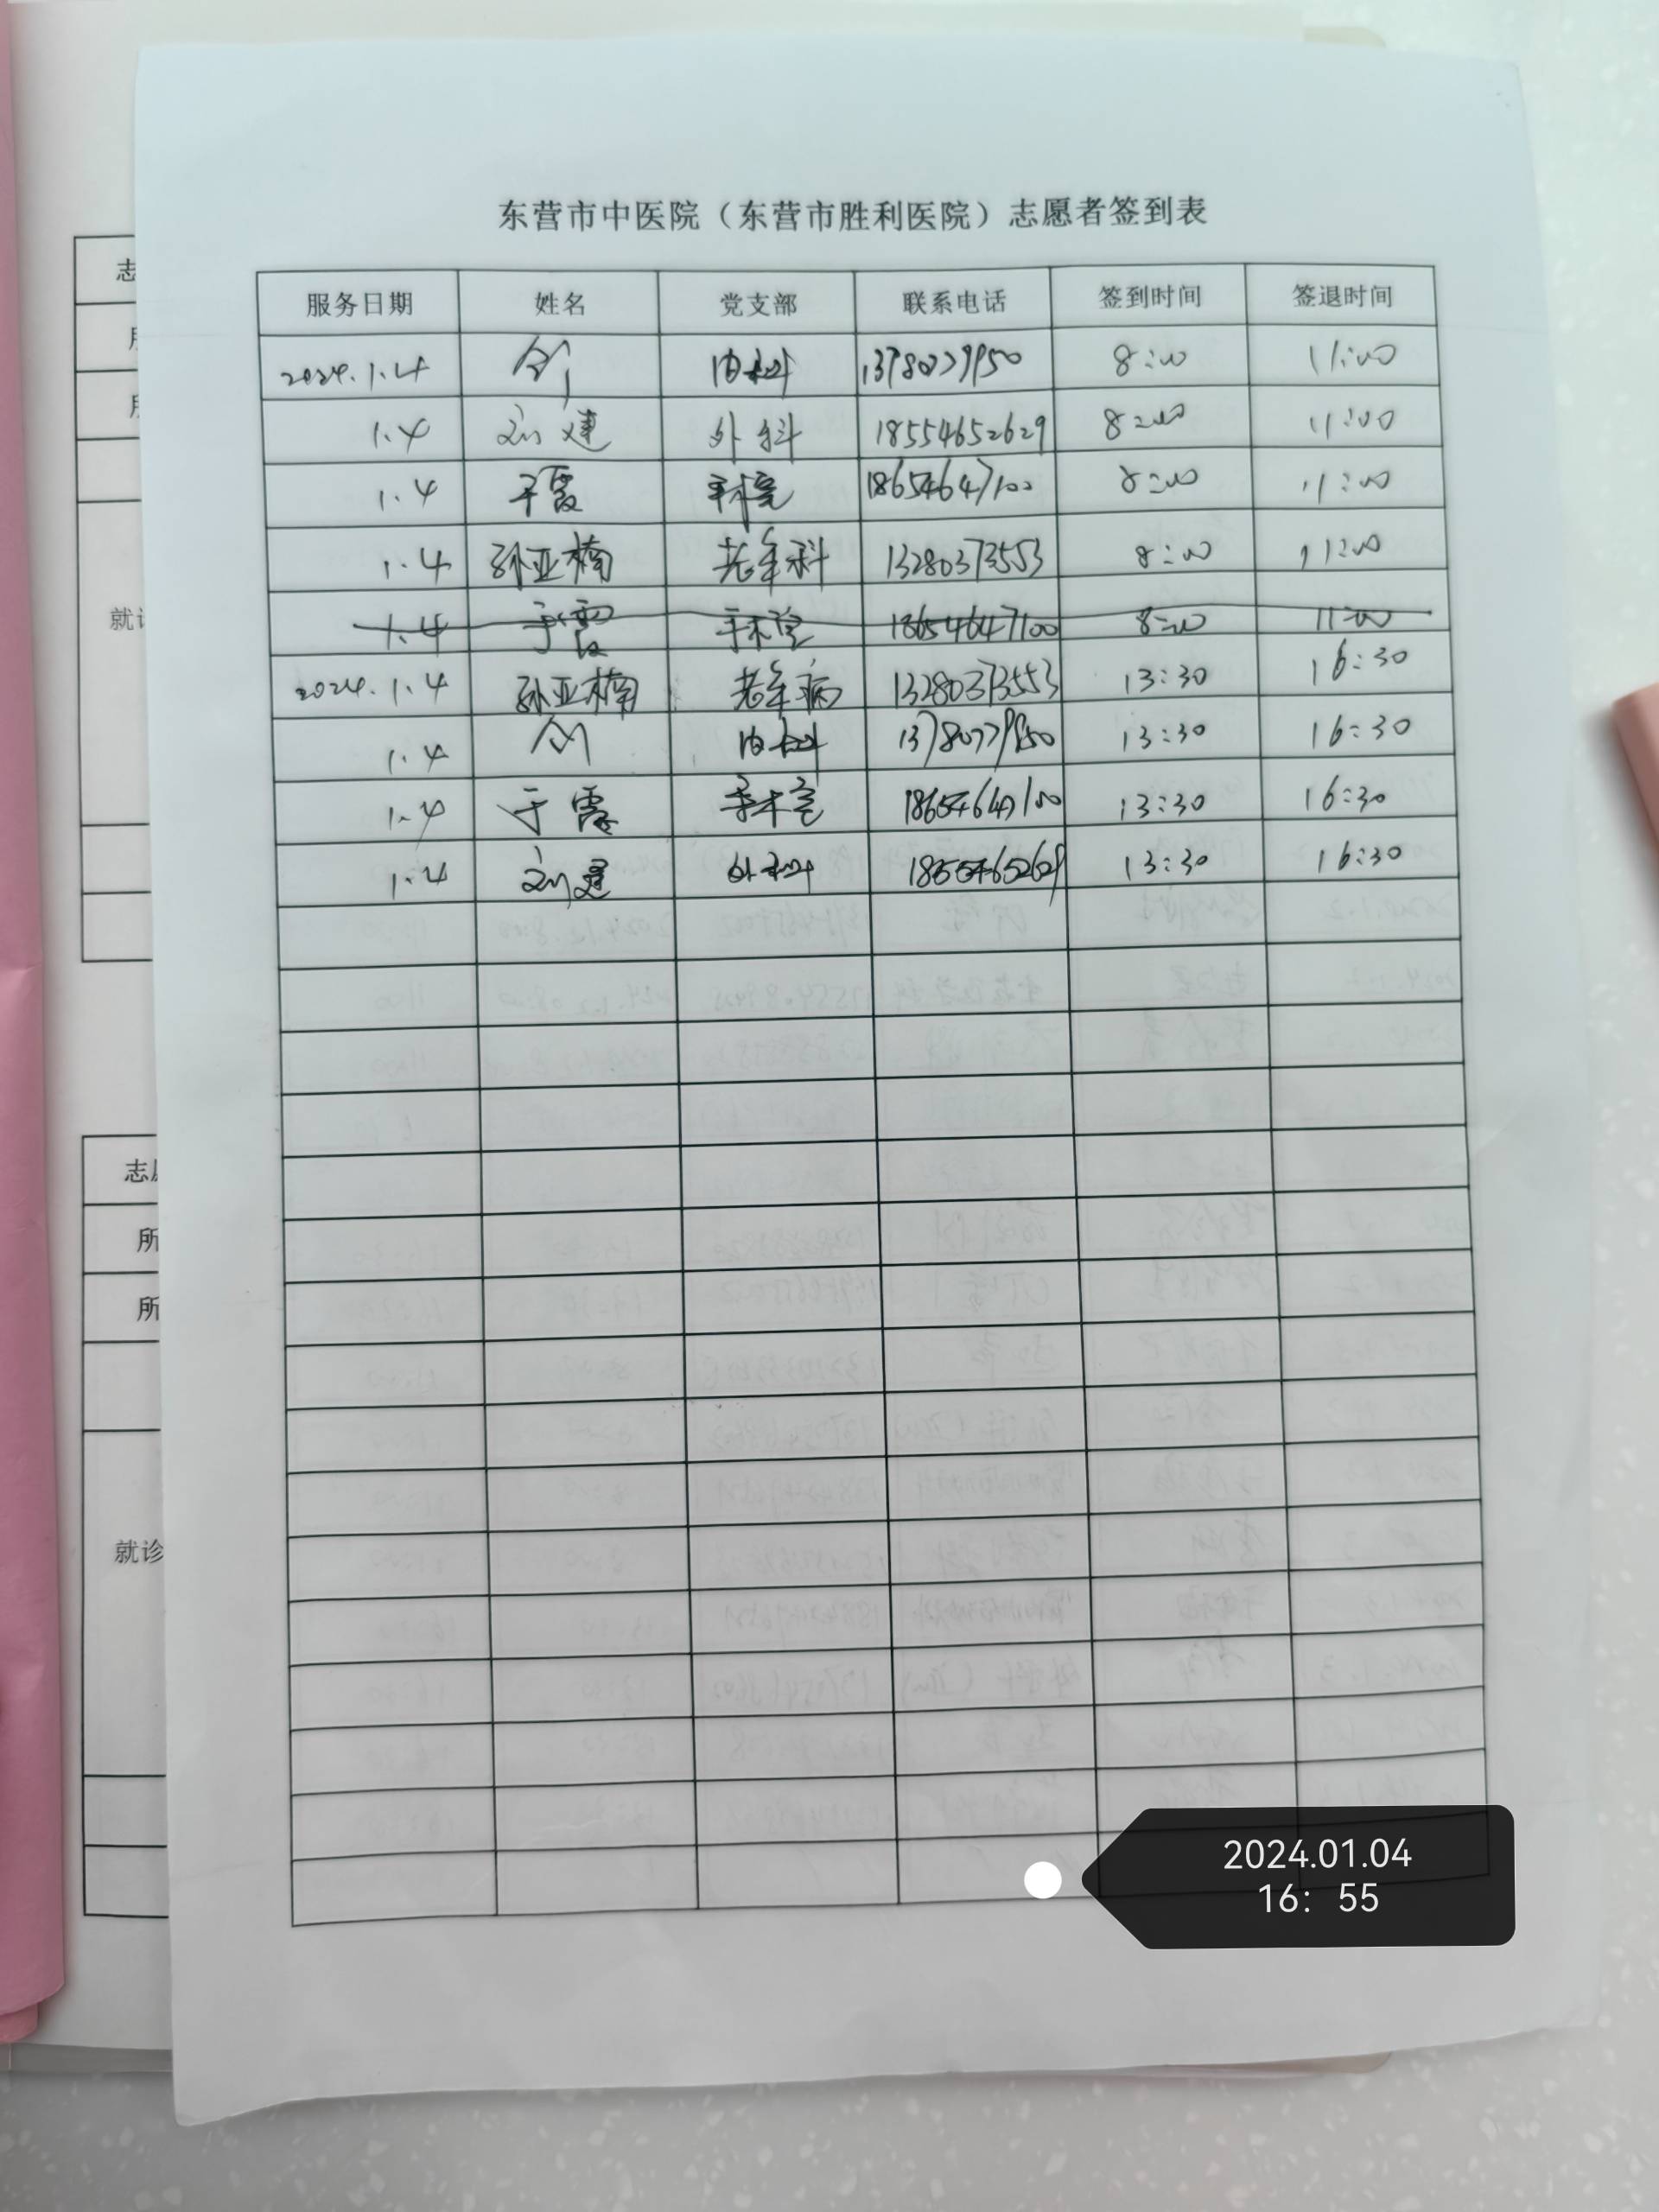 东营市中医院（东营市胜利医院）志愿者签到表
服务日期 姓名 党支部 联系电话 签到时间 签退时间
2024.1.4 内科 13780779950 8:00 11:00
1.4 刘建 外科 18554652629 8:00 11:00
1.4 于霞 手术室 18654647100 8:00 11:00
1.4 孙亚楠 老年科 13280373553 8:00 11:00
1.4 于霞 手术室 18654647100 8:00 11:00
2024.1.4 孙亚楠 老年病 13280373553 13:30 16:30
1.4 内科 13780779950 13:30 16:30
1.4 于霞 手术室 18654647100 13:30 16:30
1.4 刘建 外科 18554652629 13:30 16:30
志
就
志
所
所
就诊
2024.01.04
16: 55